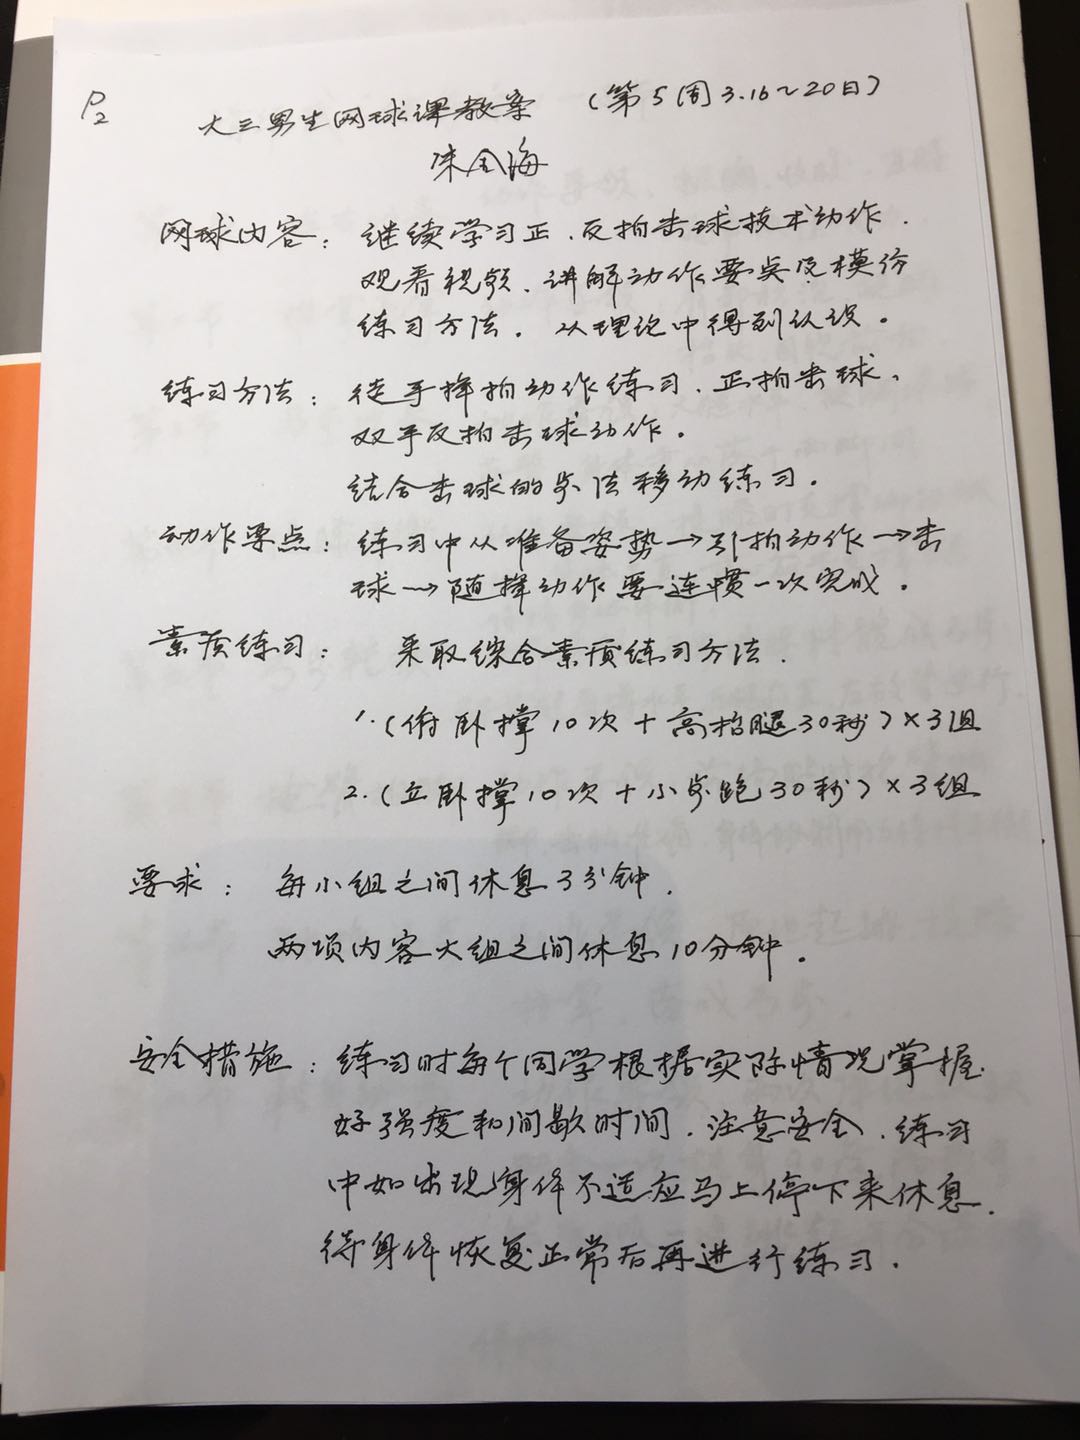 P2
大三男生网球课教案 (第5周3.16~20日)
朱全海
网球内容: 继续学习正、反拍击球技术动作.
观看视频、讲解动作要点及模仿
练习方法. 从理论中得到认识.
练习方法: 徒手挥拍动作练习、正拍击球、
双手反拍击球动作.
结合击球的步法移动练习.
动作要点: 练习中从准备姿势→引拍动作→击
球→随挥动作要连惯一次完成.
素质练习: 采取综合素质练习方法.
1.(俯卧撑10次+高抬腿30秒)×3组
2.(立卧撑10次+小步跑30秒)×3组
要求: 每小组之间休息3分钟.
两项内容大组之间休息10分钟.
安全措施: 练习时每个同学根据实际情况掌握
好强度和间歇时间、注意安全、练习
中如出现身体不适应马上停下来休息.
待身体恢复正常后再进行练习.